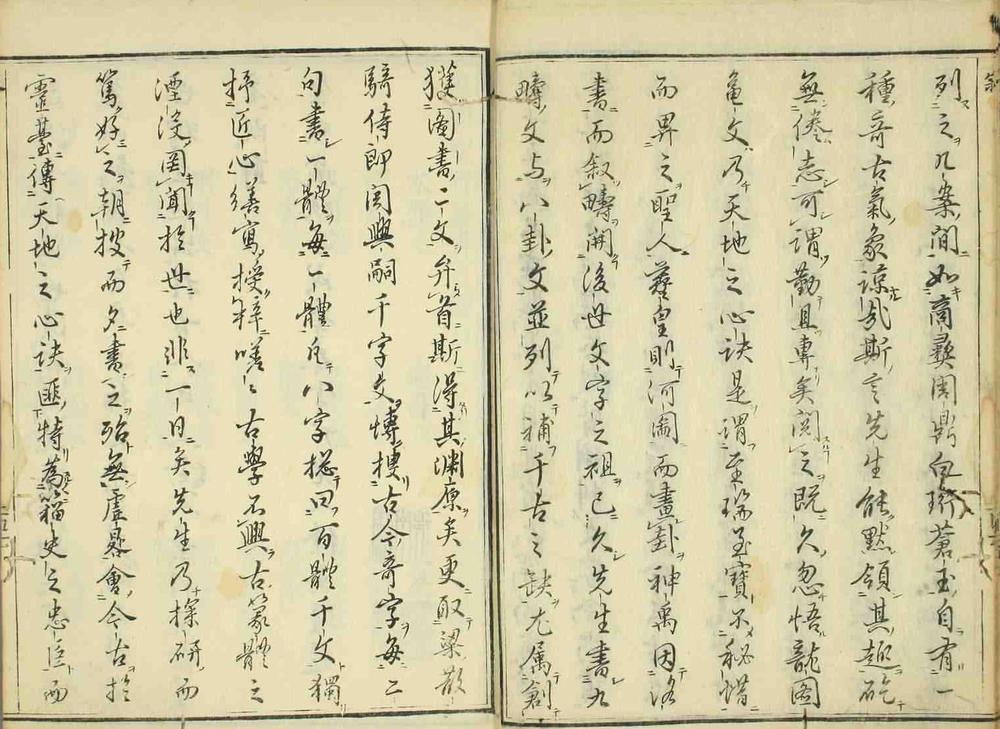 列之几案間如商彜周鼎白珩蒼玉自有一
種奇古氣象諒哉斯言先生能默領其趣矻
無倦志可謂勤且專矣閲之既久忽悟龍圖
龜文乃天地之心訣是謂至瑞至寶不秘惜
而畀之聖人羲皇則河圖而畫卦神禹因洛
書而叙疇開後世文字之祖已久先生書九
疇文与八卦文並列以補千古之缺尤属創
獲圖書二文弁首斯得其淵原矣更取梁散
騎侍郎周興嗣千字文博搜古今奇字每二
句書一體每一體凡八字揔曰百體千文獨
抒匠心繕寫授梓嗟〻古學不興古篆體之
湮没罔聞於世也非一日矣先生乃探研而
篤好之朝搜而夕書之殆無虚晷會今古於
靈䑓傳天地之心訣匪特為籀史之忠臣而